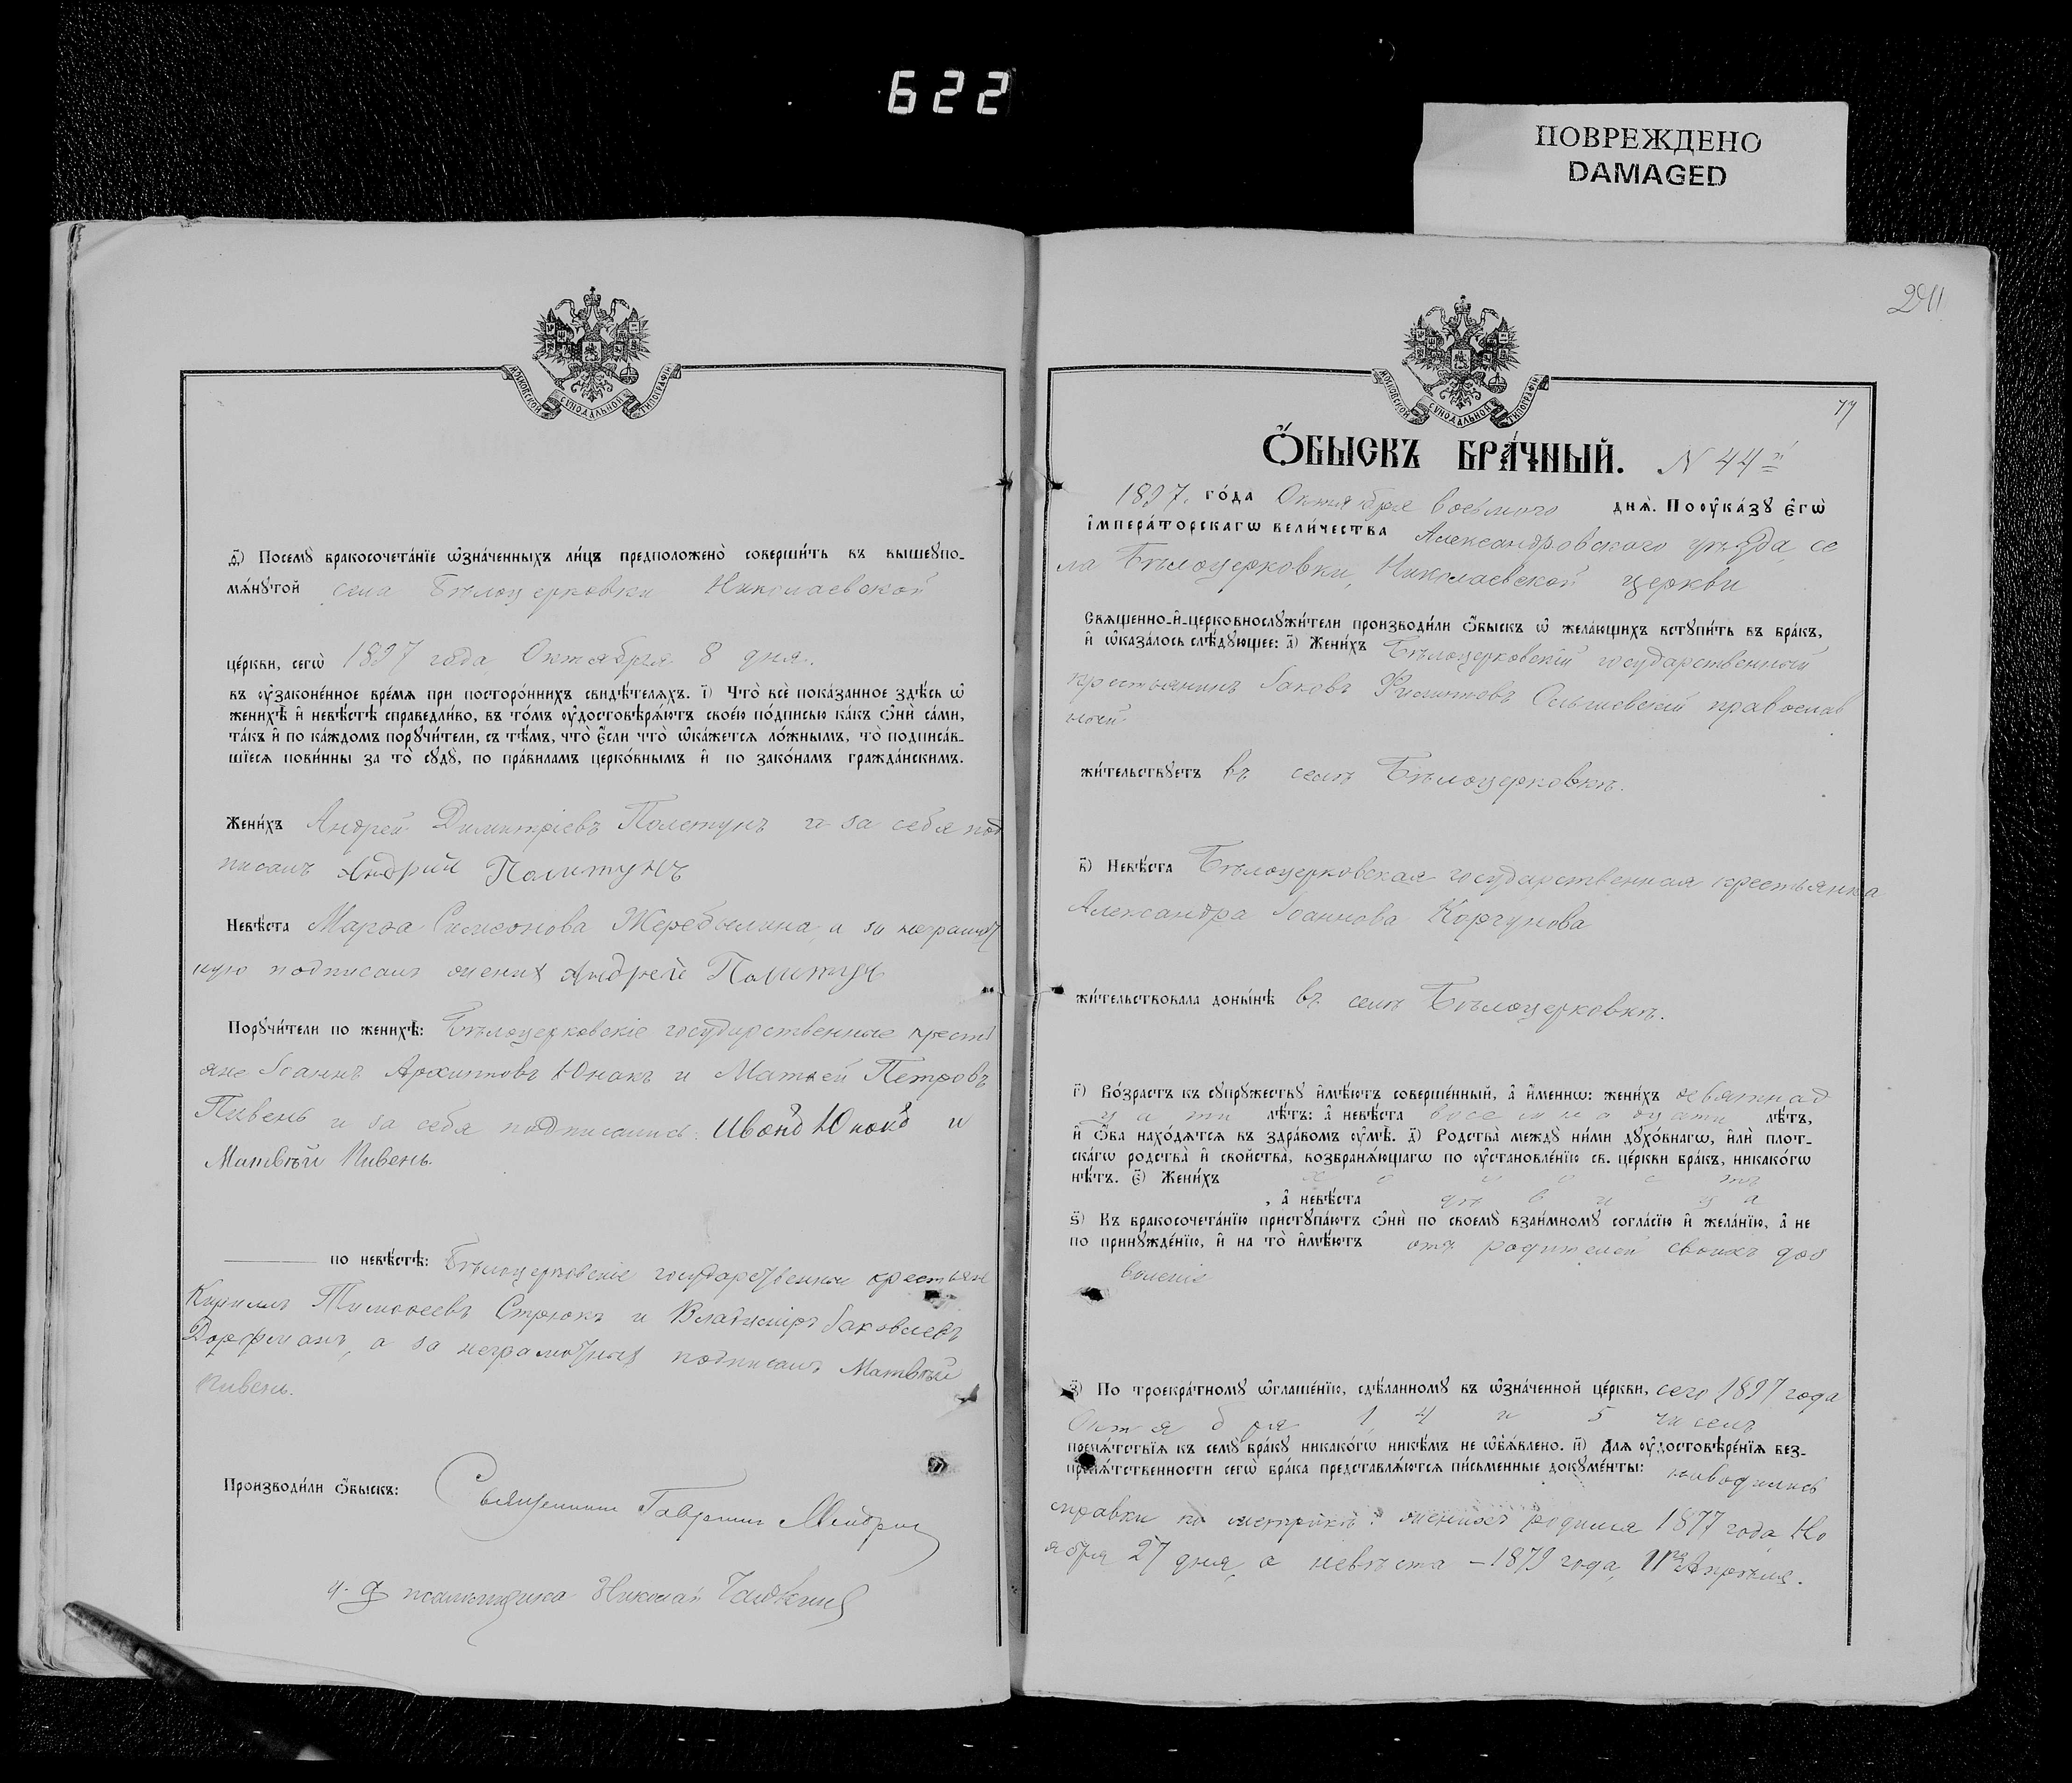 622
ПОВРЕЖДЕНО
DAMAGED
МОСКОВСКОЙ СѴНОДАЛЬНОЙ ТИПОГРАФІИ
д҃) Посемꙋ̀ бракосочета́нїе ѡ҆зна́ченныхъ ли́цъ предположено̀ соверши́ть въ вышеꙋпо-
мѧ́нꙋтой села Бѣлоцерковки Николаевской
це́ркви, сегѡ̀ 1897 года Октября 8 дня.
въ ᲂу҆законе́нное вре́мѧ при посторо́ннихъ свидѣ́телѧхъ. і҃) Что̀ всѐ пока́занное здѣ́сь ѡ҆
женихѣ̀ и҆ невѣ́стѣ справедли́во, въ то́мъ ᲂу҆достовѣрѧ́ютъ свое́ю по́дписью ка́къ ѻ҆нѝ са́ми,
та́къ и҆ по ка́ждомъ порꙋчи́тели, съ тѣ́мъ, что̀ є҆́сли что̀ ѡ҆ка́жетсѧ ло́жнымъ, то̀ подписа́в-
шїесѧ пови́нны за то̀ сꙋдꙋ̀, по пра́виламъ церко́внымъ и҆ по зако́намъ гражда́нскимъ.
Жени́хъ Андрей Димитріевъ Полтунъ и за себя под
писалъ Андрий Политунъ
Невѣ́ста Марѳа Симеонова Жеребылина, а за неграмот
ную подписалъ жених Андрей Политун
Порꙋчи́тели по женихѣ̀: Бѣлоцерковскіе государственные кресть
яне Іоаннъ Архиповъ Юнакъ и Матѳей Петровъ
Пивень и за себя подписались: Иванъ Юнакъ и
Матвѣй Пивень.
по невѣ́стѣ: Бѣлоцерковскіе государственные крестьяне
Кириллъ Тимоѳеевъ Стрюкъ и Владиміръ Іаковлевъ
Дорфманъ, а за неграмотныхъ подписалъ Матвѣй
Пивень.
Производи́ли ѻ҆́быскъ: Священникъ Гавріилъ
и. д псаломщика Николай
241
77
Ѻ҆́БЫСКЪ БРА́ЧНЫЙ. N 44й
1897. го́да Октября восьмого днѧ̀. По ᲂу҆ка́зꙋ є҆гѡ̀
і҆мпера́торскагѡ вели́чества Александровского уѣзда, се
ла Бѣлоцерковки, Николаевской церкви
Свѧще́нно-и҆-церковнослꙋжи́тели производи́ли ѻ҆́быскъ ѡ҆ жела́ющихъ встꙋпи́ть въ бра́къ,
и҆ ѡ҆каза́лось слѣ́дꙋющее: а҃) Жени́хъ Бѣлоцерковскій государственный
крестьянинъ Іаковъ Филипповъ православ
ный
жи́тельствꙋетъ въ селѣ Бѣлоцерковкѣ.
в҃) Невѣ́ста Бѣлоцерковская государственная крестьянка
Александра Іоаннова Коргунова
жи́тельствовала доны́нѣ въ селѣ Бѣлоцерковкѣ.
г҃) Во́зрастъ къ сꙋпрꙋ́жествꙋ и҆мѣ́ютъ соверше́нный, а҆ и҆́менно: жени́хъ девятнад
цати лѣ́тъ: а҆ невѣ́ста восемнадцати лѣ́тъ,
и҆ ѻ҆́ба нахо́дѧтсѧ въ здра́вомъ ᲂу҆мѣ̀. д҃) Родства̀ междꙋ̀ ни́ми дꙋхо́внагѡ, и҆лѝ плот-
ска́гѡ родства̀ и҆ сво́йства̀, возбранѧ́ющагѡ по ᲂу҆становле́нїю св. це́ркви бра́къ, никако́гѡ
нѣ́тъ. є҃) Жени́хъ холостъ
, а҆ невѣ́ста дѣвица
ѕ҃) Къ бракосочета́нїю пристꙋпа́ютъ ѻ҆нѝ по своемꙋ̀ взаи́мномꙋ согла́сїю и҆ жела́нїю, а҆ не
по принꙋжде́нїю, и҆ на то̀ и҆мѣ́ютъ отъ родителей своихъ доз
воленіе
з҃) По троекра́тномꙋ ѡ҆глаше́нїю, сдѣ́ланномꙋ въ ѡ҆зна́ченной це́ркви, сего 1897 года
Октября 1 4 и 5 чиселъ
препѧ́тствїѧ къ семꙋ̀ бра́кꙋ никако́гѡ никѣ́мъ не ѡ҆б̾ѧ́влено. и҃) Длѧ ᲂу҆достовѣре́нїѧ без-
препѧ́тственности сегѡ̀ бра́ка представлѧ́ютсѧ пи́сьменные докꙋме́нты: наводились
справки по метрикѣ: женихъ родился 1877 года, Но
ября 27 дня, а невѣста – 1879 года, 11го Апрѣля.